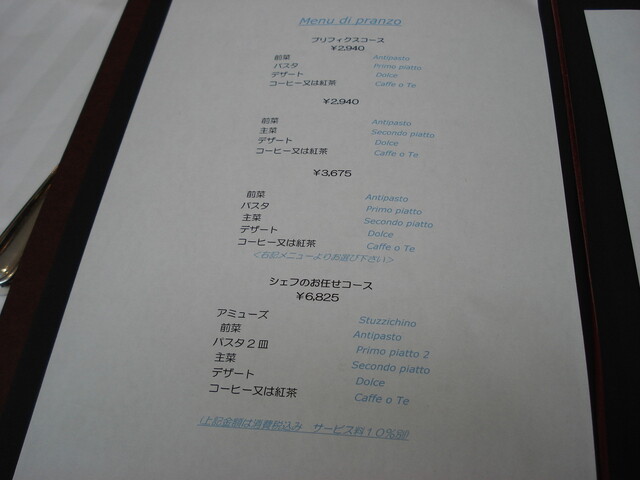 Menu di pranzo
プリフィクスコース
¥2,940
前菜 Antipasto
パスタ Primo piatto
デザート Dolce
コーヒー又は紅茶 Caffe o Te
¥2,940
前菜 Antipasto
主菜 Secondo piatto
デザート Dolce
コーヒー又は紅茶 Caffe o Te
¥3,675
前菜 Antipasto
パスタ Primo piatto
主菜 Secondo piatto
デザート Dolce
コーヒー又は紅茶 Caffe o Te
<右記メニューよりお選び下さい>
シェフのお任せコース
¥6,825
アミューズ Stuzzichino
前菜 Antipasto
パスタ2皿 Primo piatto 2
主菜 Secondo piatto
デザート Dolce
コーヒー又は紅茶 Caffe o Te
(上記金額は消費税込み サービス料10%別)